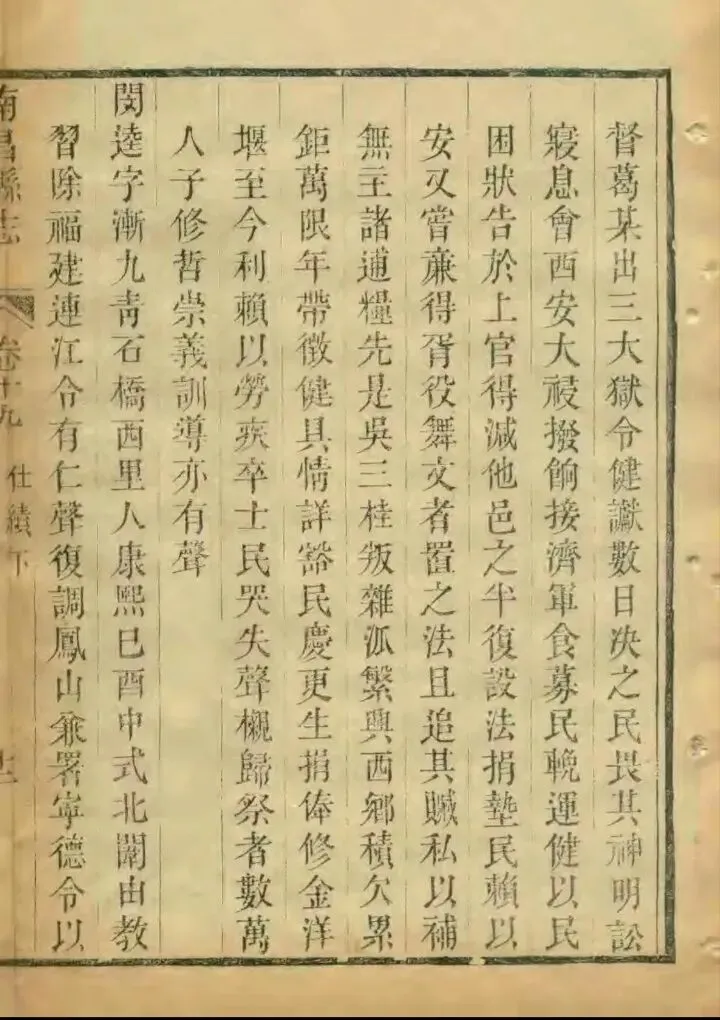 督葛某出三大獄令健讞數日决之民畏其神明訟
寢息會西安大祲撥餉接濟軍食募民輓運健以民
困狀告於上官得減他邑之半復設法捐墊民賴以
安又嘗亷得胥役舞文者置之法且追其贓私以補
無主諸逋糧先是吳三桂叛雜派繁興西鄉積欠累
鉅萬限年帶徵健具情詳豁民慶更生捐俸修金洋
堰至今利賴以勞疾卒士民哭失聲櫬歸祭者數萬
人子修哲崇義訓導亦有聲
閔逵字漸九靑石橋西里人康熙已酉中式北闈由教
習除福建連江令有仁聲復調鳳山兼署寧德令以
南昌縣志 卷十九 仕績下